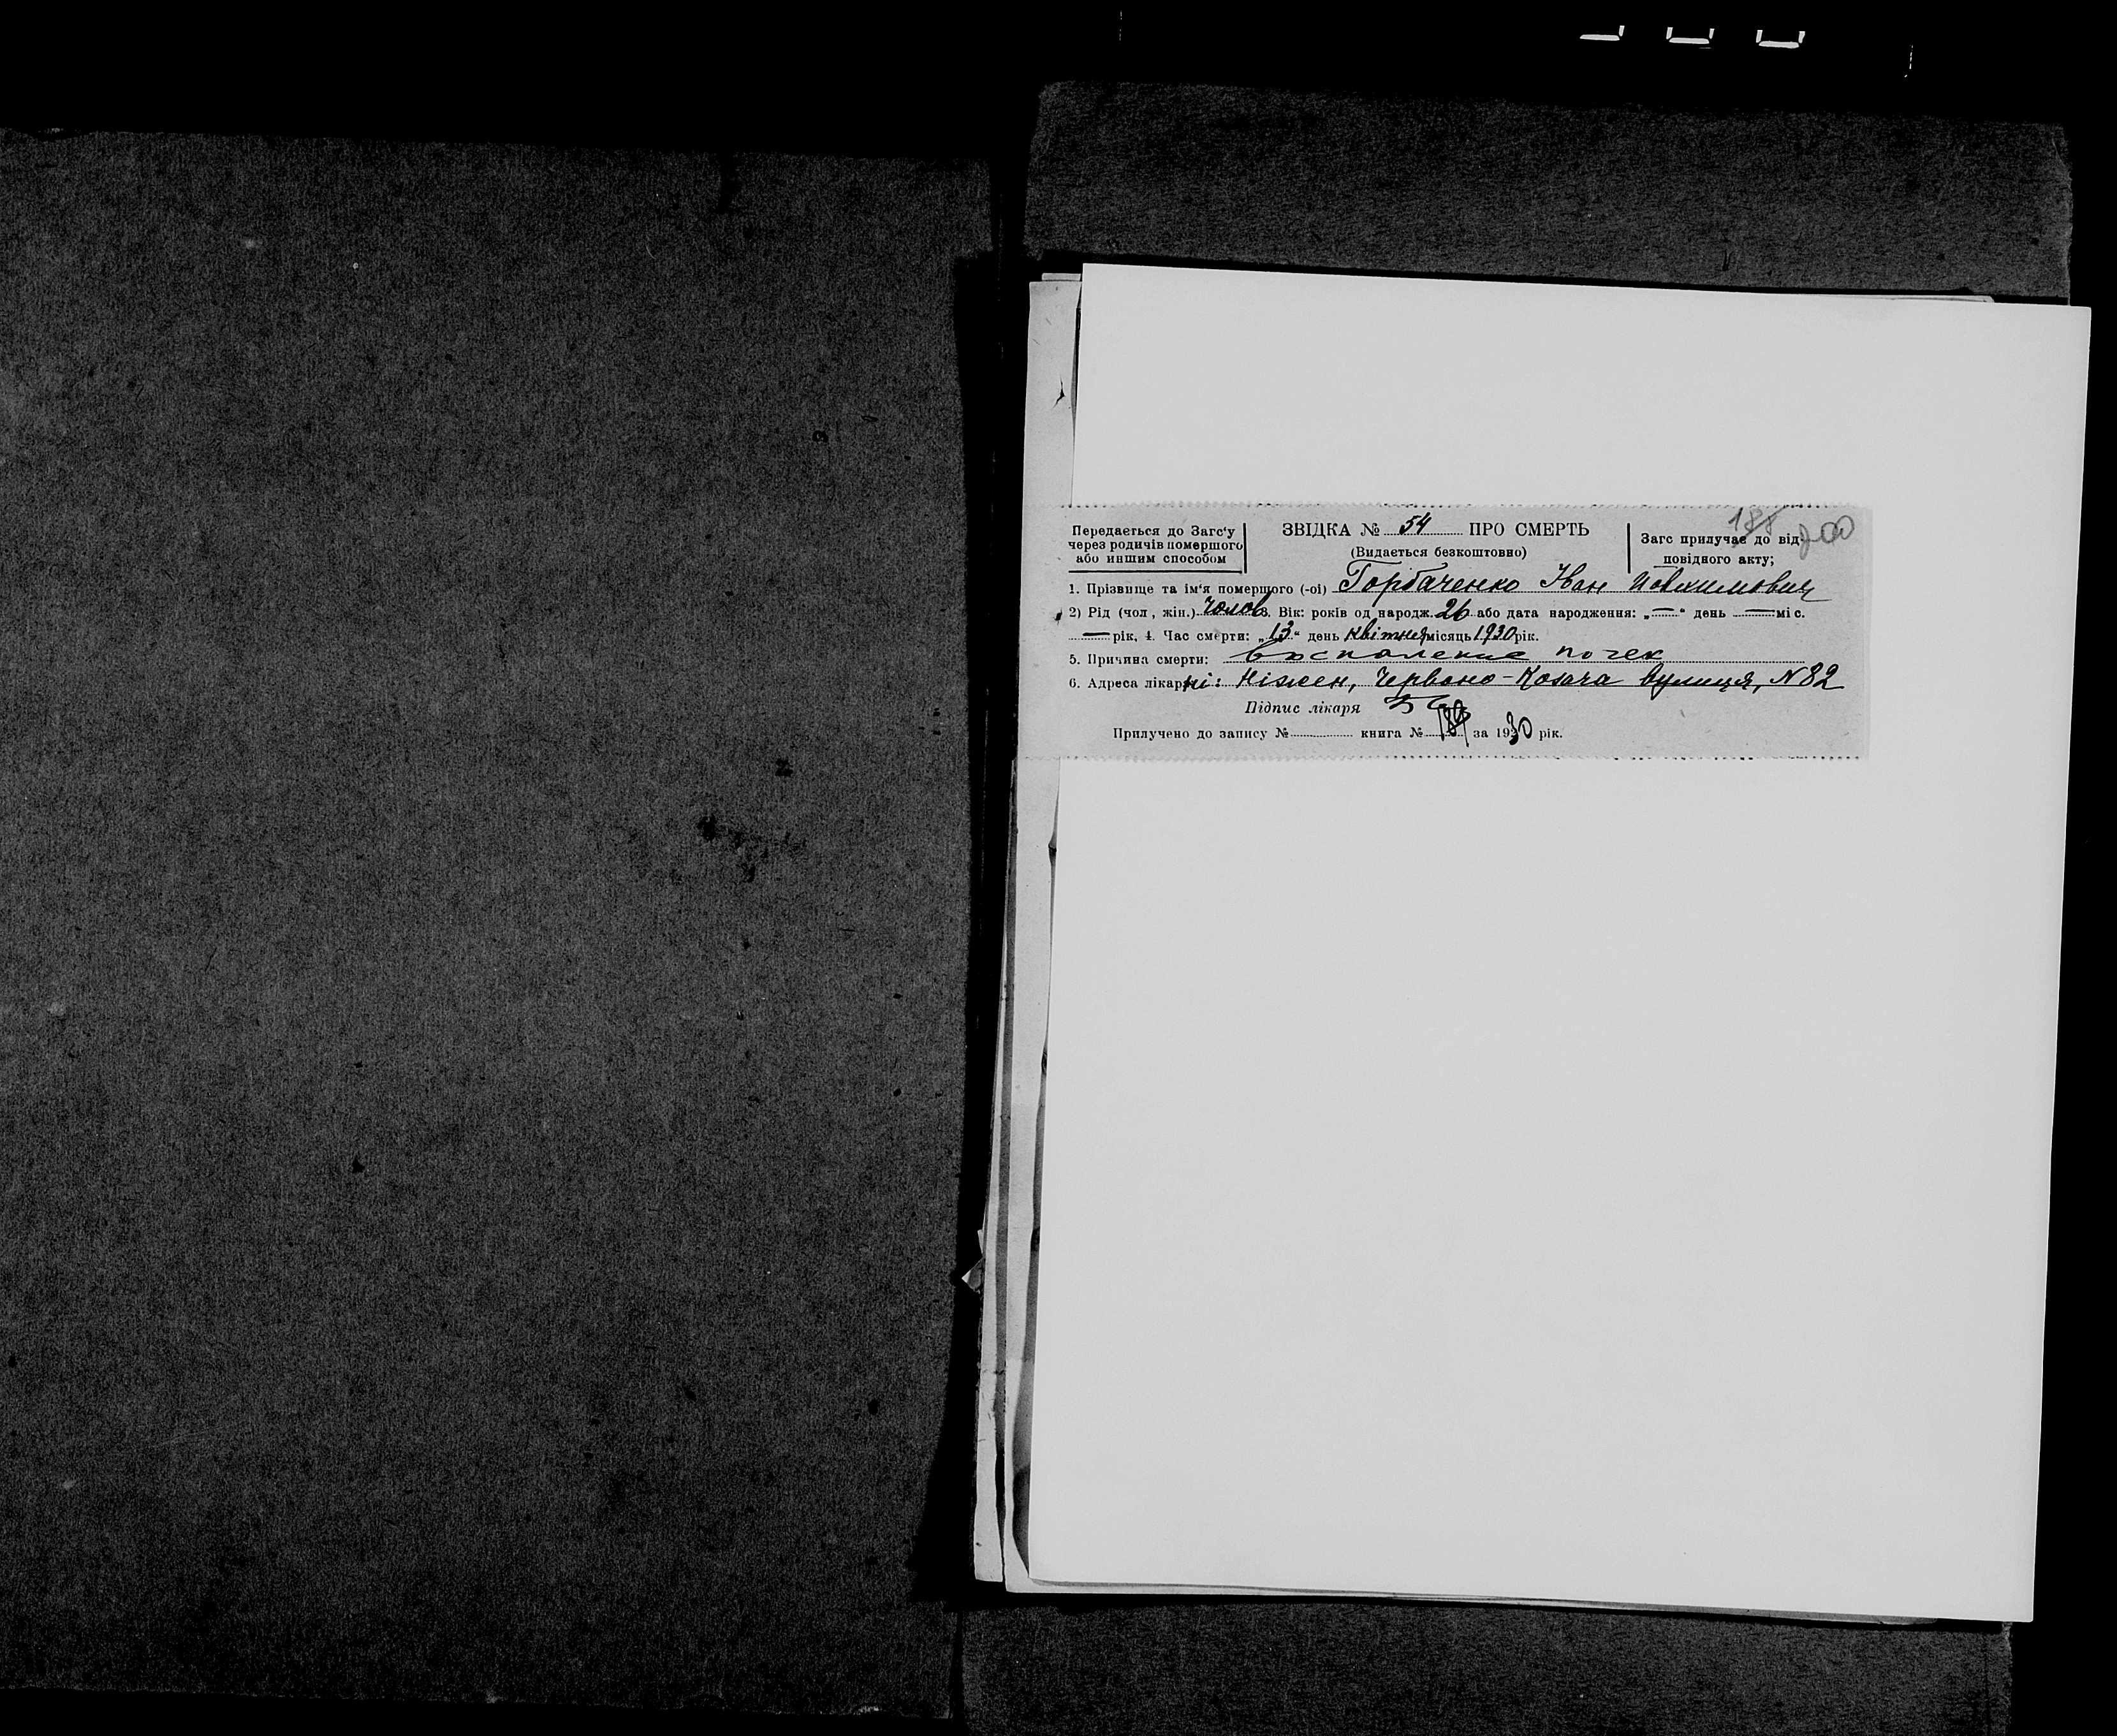 188 200
Передається до Загс'у
через родичів помершого
або иншим способом
ЗВІДКА № 54 ПРО СМЕРТЬ
(Видається безкоштовно)
Загс прилучає до від-
повідного акту;
1. Прізвище та ім'я помершого (-ої) Горбаченко Іван
2) Рід (чол, жін.) Чолов. 3. Вік: років од народж. 26 або дата народження: „—" день — міс.
— рік, 4. Час смерти: „13" день квітня місяць 1930 рік.
5. Причина смерти: Воспаление почек
6. Адреса лікарні: Ніжен, Червоно-Козача вулиця, N 82
Підпис лікаря
Прилучено до запису № книга № за 1930 рік.